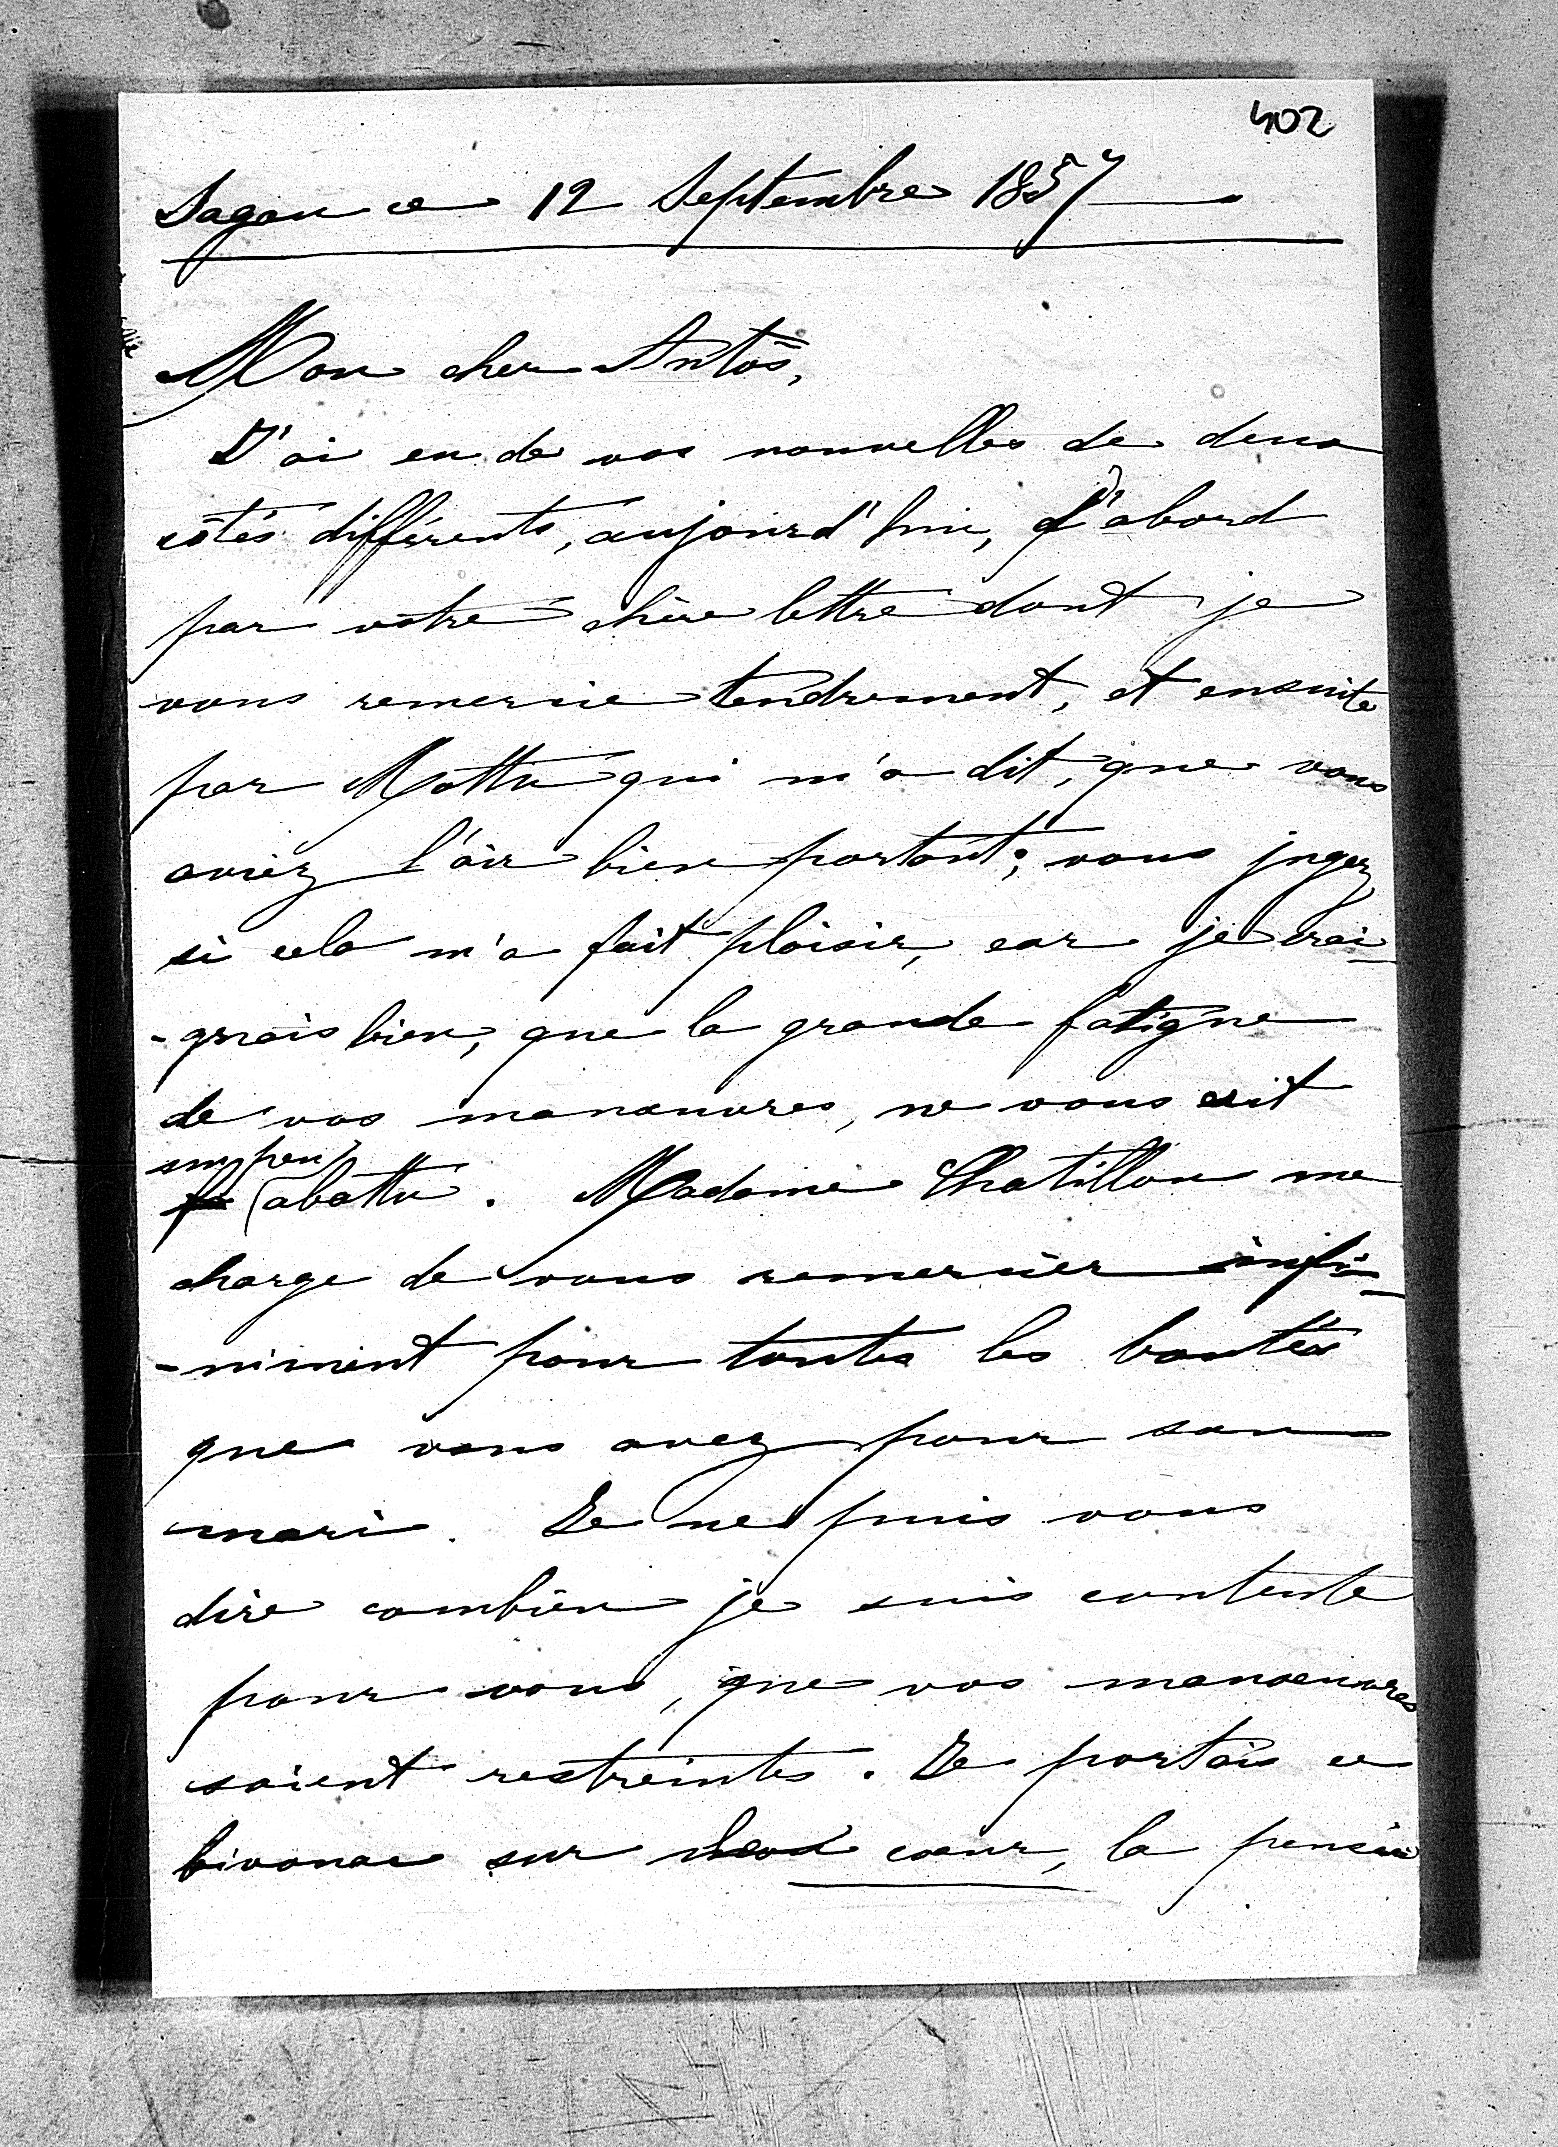 402
Sagan ce 12 Septembre 1857
Mon cher Antos,
J'ai eu de vos nouvelles de deux
côtés différents, aujourd'hui, d'abord
par votre chère lettre dont je
vous remercie tendrement, et ensuite
par Mattu qui m'a dit, que vous
aviez l'air bien portant; vous jugez
si cela m'a fait plaisir, car je crai-
-gnais bien, que la grande fatigue
de vos manœuvres, ne vous eut
un peu
abattu. Madame Chatillon me
charge de vous remercier infi-
-niment pour toutes les bontés
que vous avez pour son
mari. Je ne puis vous
dire combien je suis contente
pour vous, que vos manoeuvres
soient restreintes. Je portais ce
bivouac sur cœur, la pensée